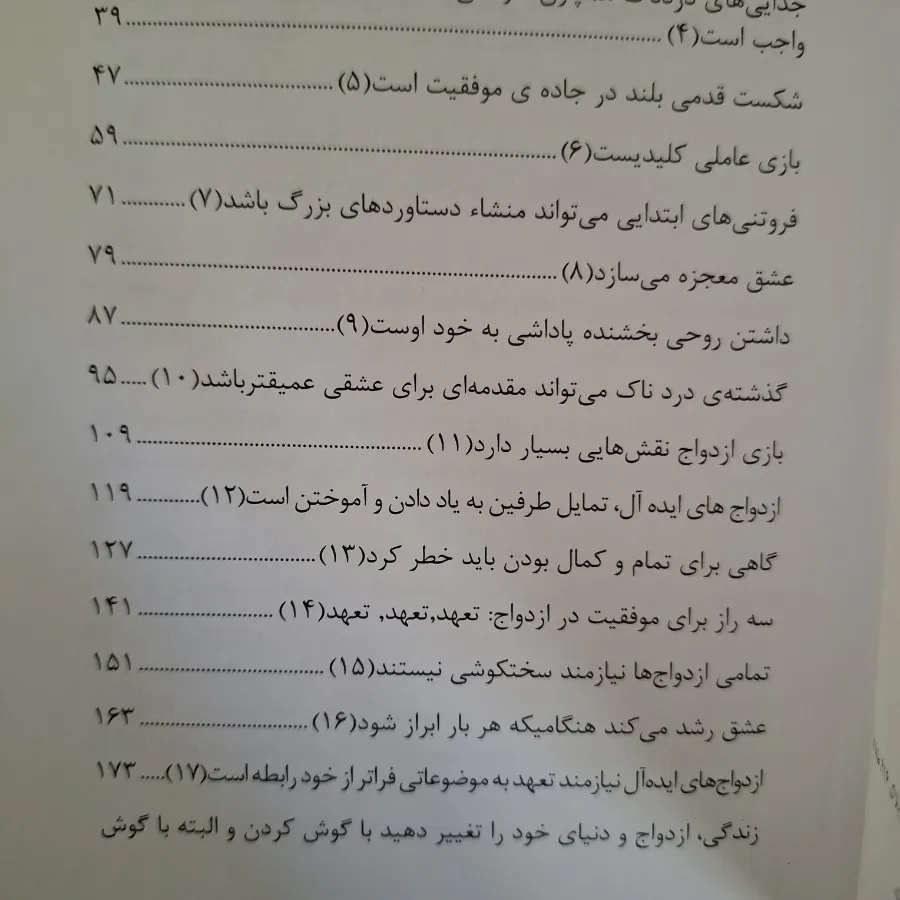 جدایی‌های
واجب است(۴) ........................................ ۳۹
شکست قدمی بلند در جاده ی موفقیت است(۵) ........................................ ۴۷
بازی عاملی کلیدیست(۶) ........................................ ۵۹
فروتنی‌های ابتدایی می‌تواند منشاء دستاوردهای بزرگ باشد(۷) ............ ۷۱
عشق معجزه می‌سازد(۸) ........................................ ۷۹
داشتن روحی بخشنده پاداشی به خود اوست(۹) .............................. ۸۷
گذشته‌ی درد ناک می‌تواند مقدمه‌ای برای عشقی عمیقترباشد(۱۰) ..... ۹۵
بازی ازدواج نقش‌هایی بسیار دارد(۱۱) ........................................ ۱۰۹
ازدواج های ایده آل، تمایل طرفین به یاد دادن و آموختن است(۱۲) ............ ۱۱۹
گاهی برای تمام و کمال بودن باید خطر کرد(۱۳) .............................. ۱۲۷
سه راز برای موفقیت در ازدواج: تعهد,تعهد, تعهد(۱۴) ........................ ۱۴۱
تمامی ازدواج‌ها نیازمند سختکوشی نیستند(۱۵) .............................. ۱۵۱
عشق رشد می‌کند هنگامیکه هر بار ابراز شود(۱۶) .............................. ۱۶۳
ازدواج‌های ایده‌آل نیازمند تعهد به موضوعاتی فراتر از خود رابطه است(۱۷) ..... ۱۷۳
زندگی، ازدواج و دنیای خود را تغییر دهید با گوش کردن و البته با گوش